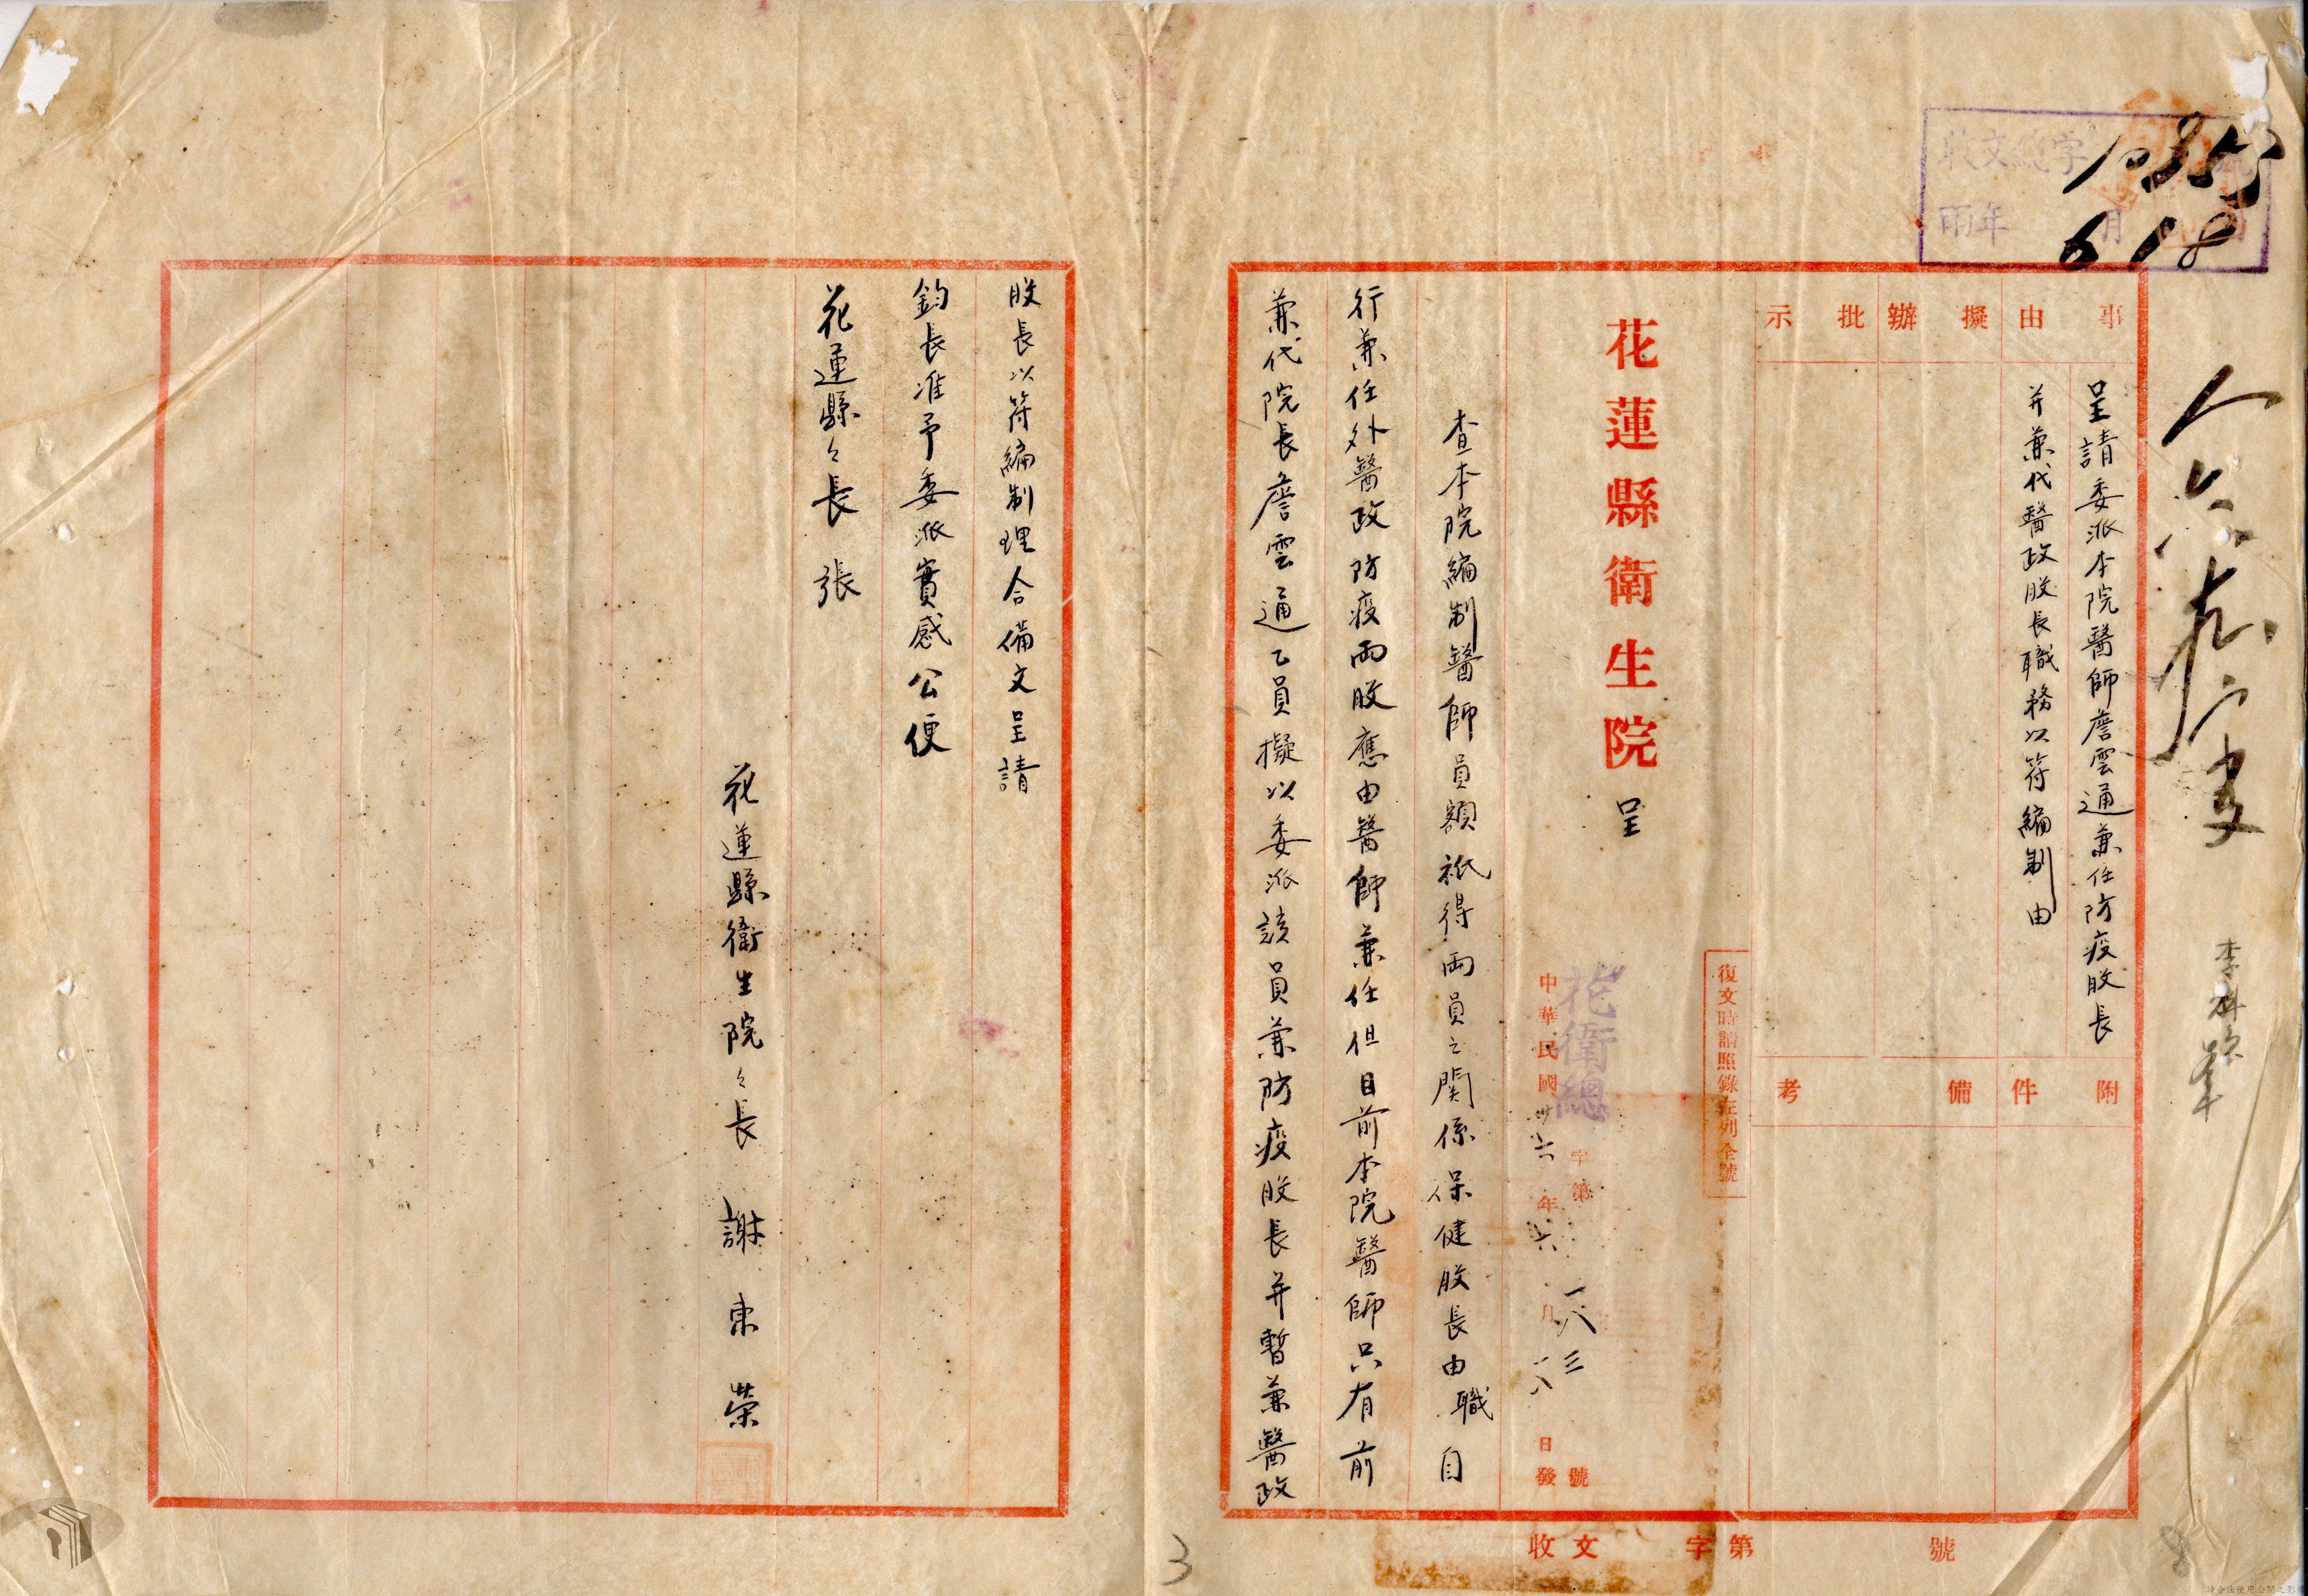 收文總字
號
年 月
618
事由
擬辦
批示
呈請委派本院醫師詹雲通兼任防疫股長
并兼代醫政股長職務以符編制由
附件
備考
復文時請照錄左列全號
花蓮縣衛生院呈
花衛總字第一八三號
中華民國卅六年六月一八日發
查本院編制醫師員額祇得兩員之関係保健股長由職自
行兼任外醫政防疫兩股應由醫師兼任但目前本院醫師只有前
兼代院長詹雲通乙員擬以委派該員兼防疫股長并暫兼醫政
股長以符編制理合備文呈請
鈞長准予委派實感公便
花蓮縣々長 張
花蓮縣衛生院々長 謝東荣
收文 字第 號
3
8